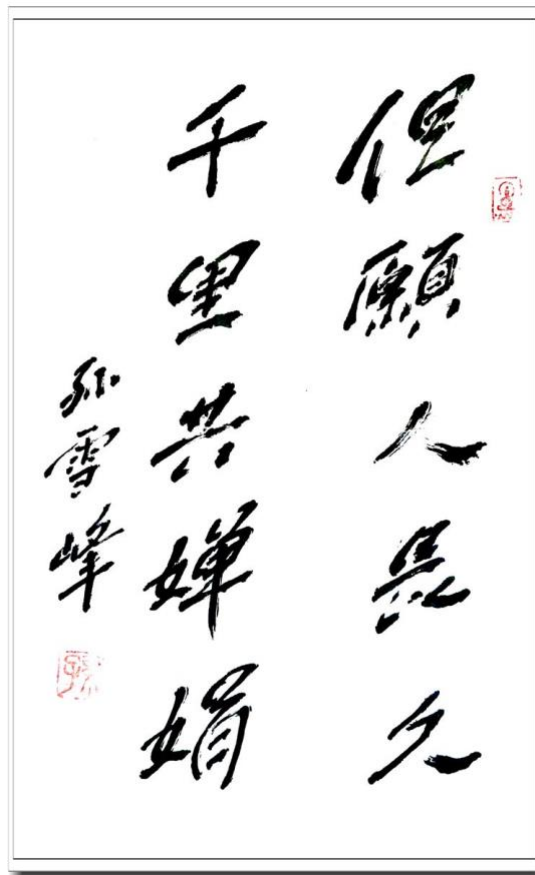 但願人長久
千里共婵娟
孙雪峰